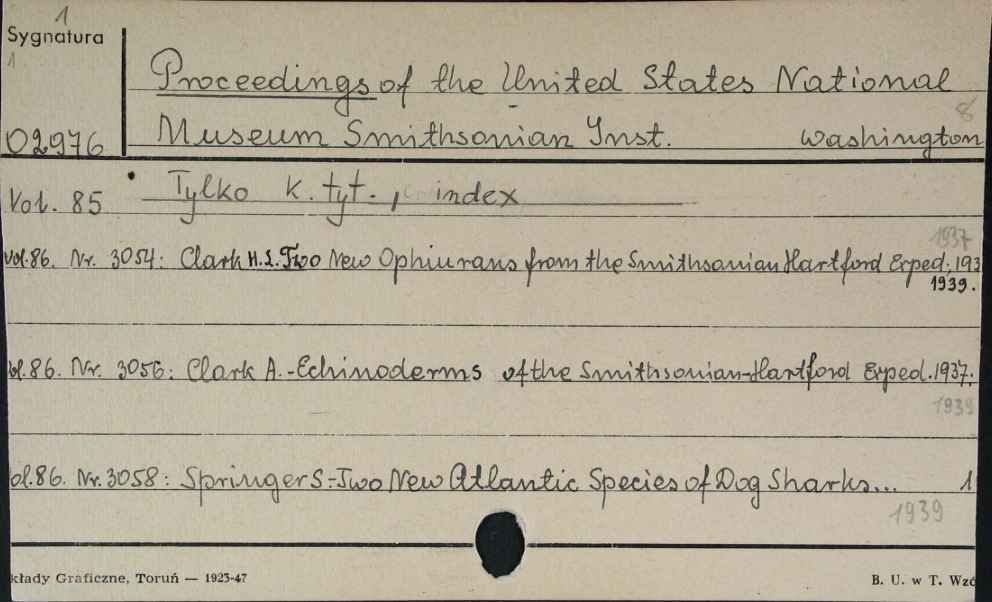 1
Sygnatura
1
Proceedings of the United States National
8
02976 Museum Smithsonian Inst. Washington
Vol. 85 Tylko k. tyt., index
1937
Vol.86. Nr. 3054: Clark H.L. Two New Ophiurans from the Smithsonian Hartford Exped. 193
1939.
ol.86. Nr. 3056: Clark A.-Echinoderms of the Smithsonian-Hartford Exped. 1937.
1939
ol.86. Nr. 3058: Springer S.-Two New Atlantic Species of Dog Sharks... 1
1939
kłady Graficzne, Toruń — 1923-47 B. U. w T. Wzó